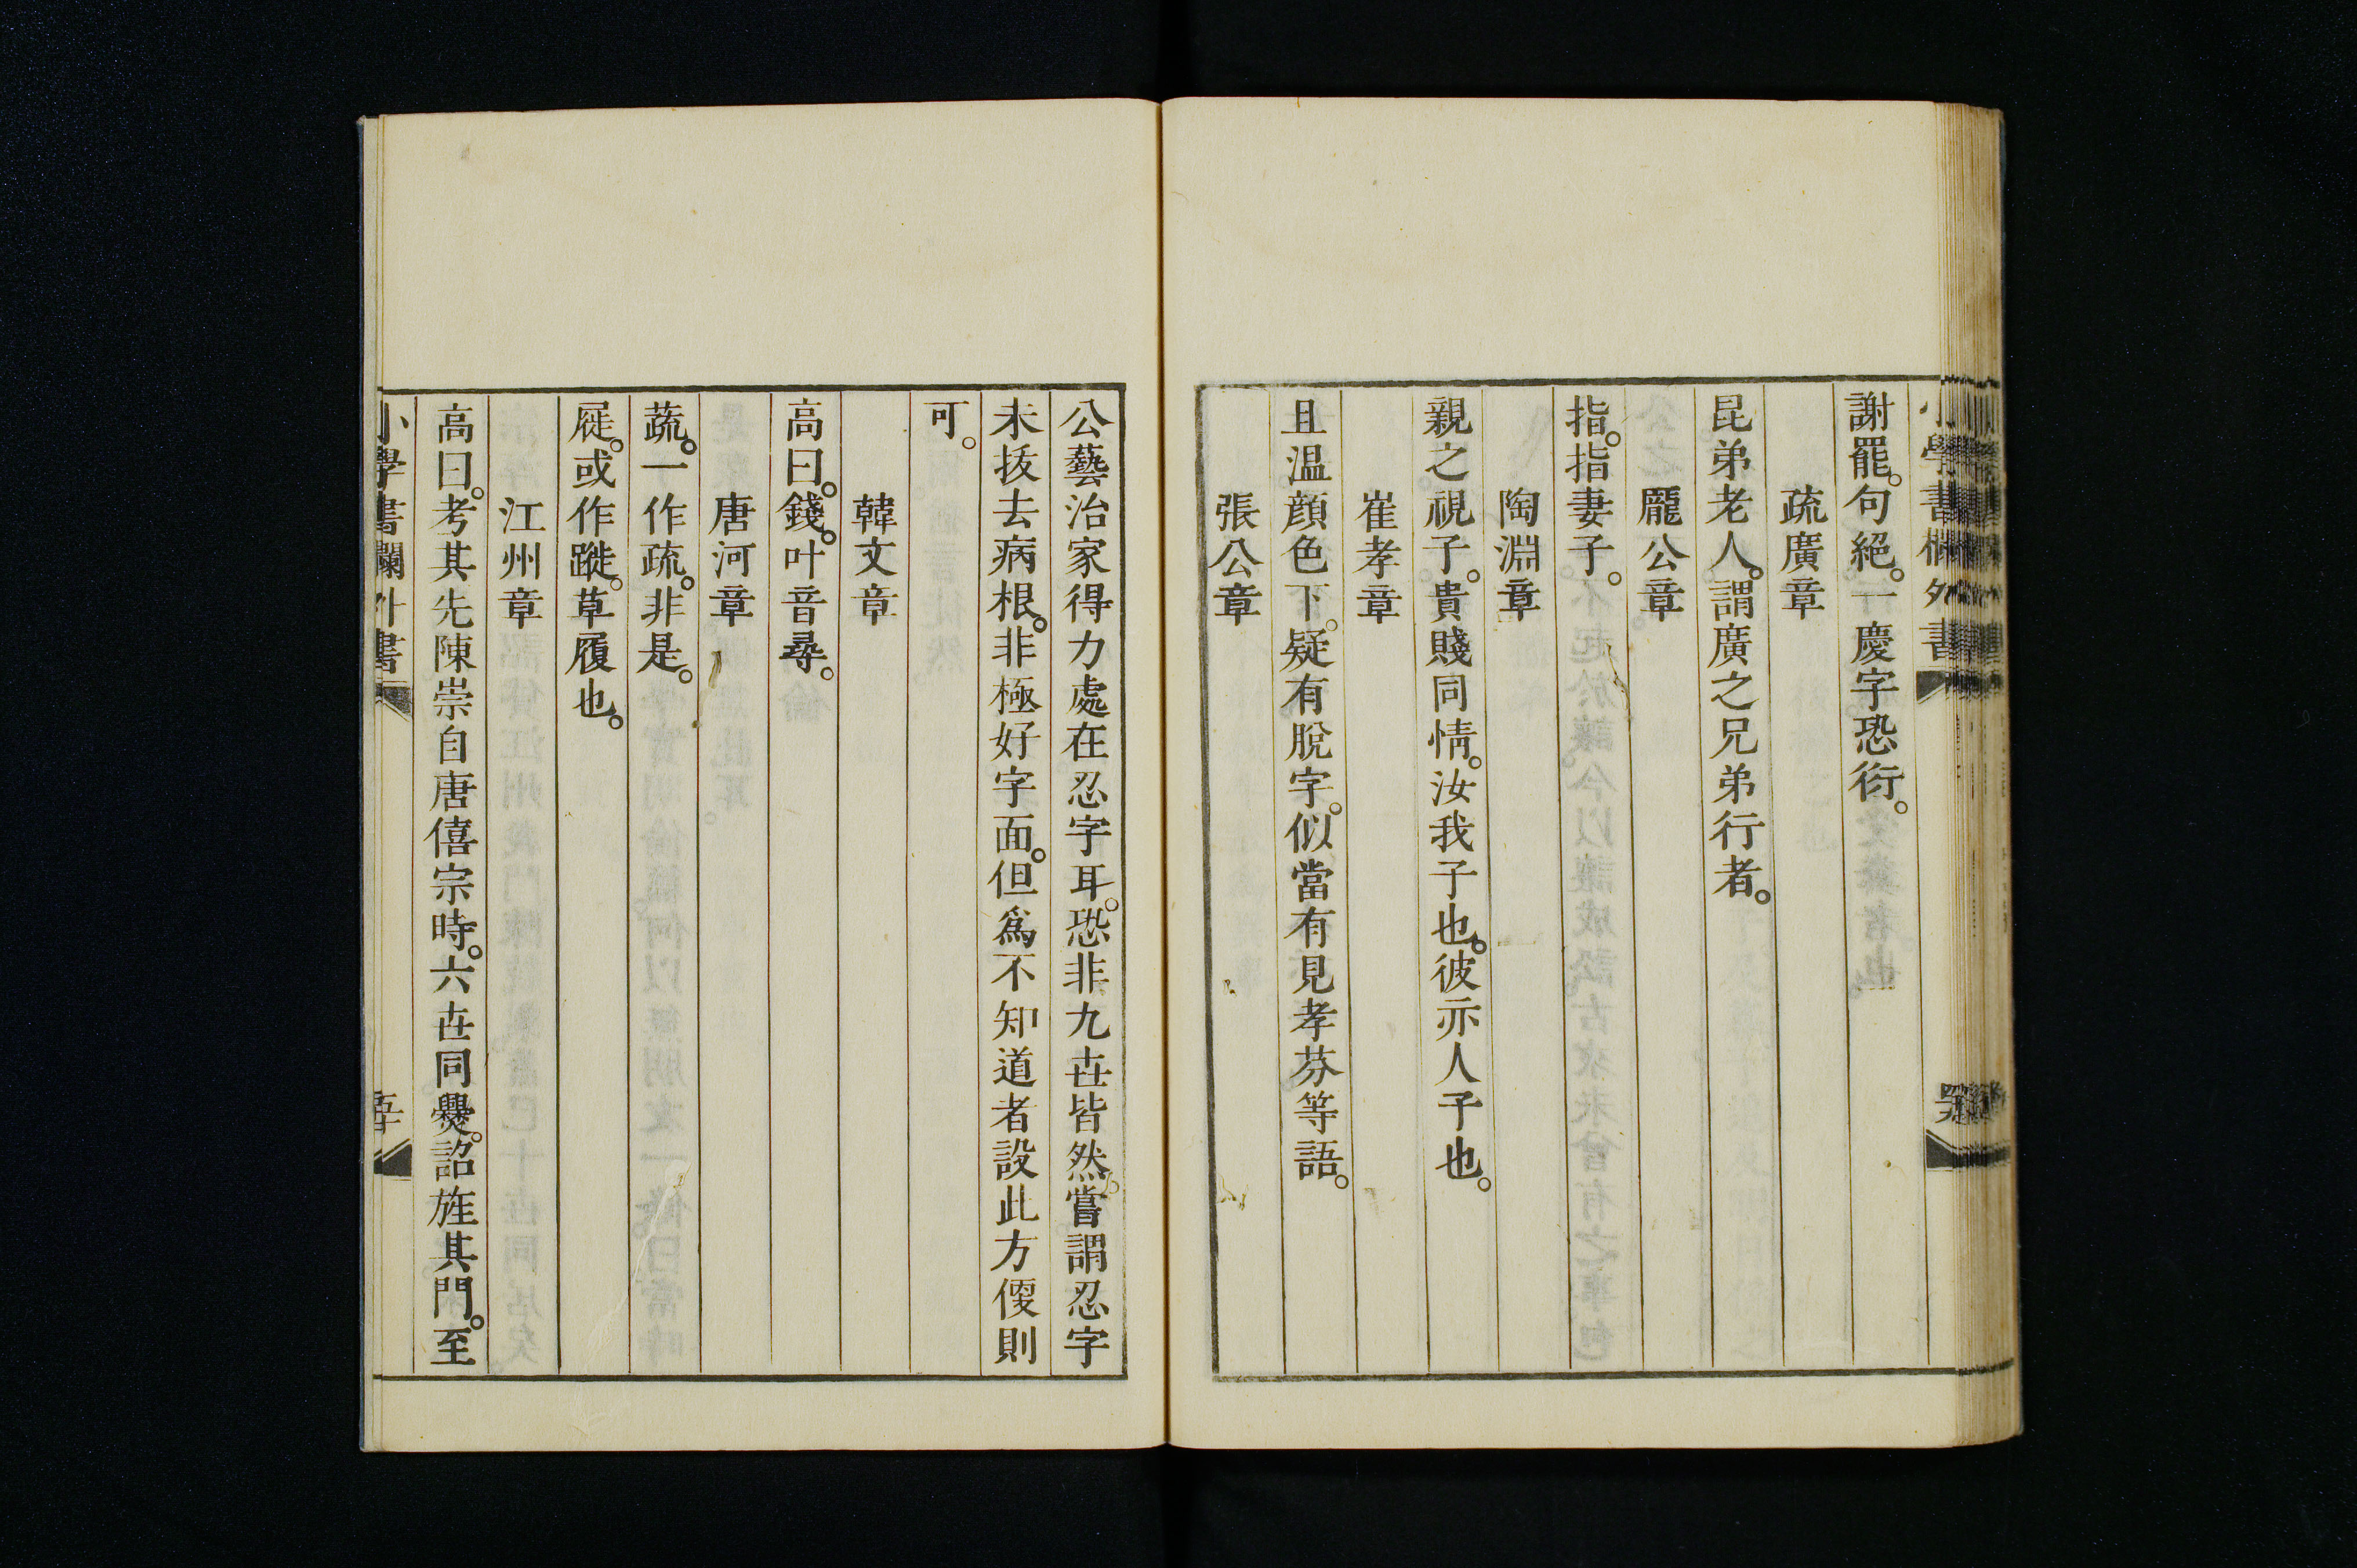 謝罷。句絕。一慶字恐衍。
疏廣章
昆弟老人。謂廣之兄弟行者。
龐公章
指。指妻子。
陶淵章
親之視子。貴賤同情。汝我子也。彼亦人子也。
崔孝章
且温顏色下。疑有脫字。似當有見孝芬等語。
張公章
公藝治家得力處在忍字耳。恐非九世皆然。嘗謂忍字
未拔去病根。非極好字面。但爲不知道者設此方便則
可。
韓文章
高曰。錢。叶音尋。
唐河章
蔬。一作疏。非是。
屣。或作蹝。草履也。
江州章
高曰。考其先陳崇自唐僖宗時。六世同爨。詔旌其門。至
小學書欄外書